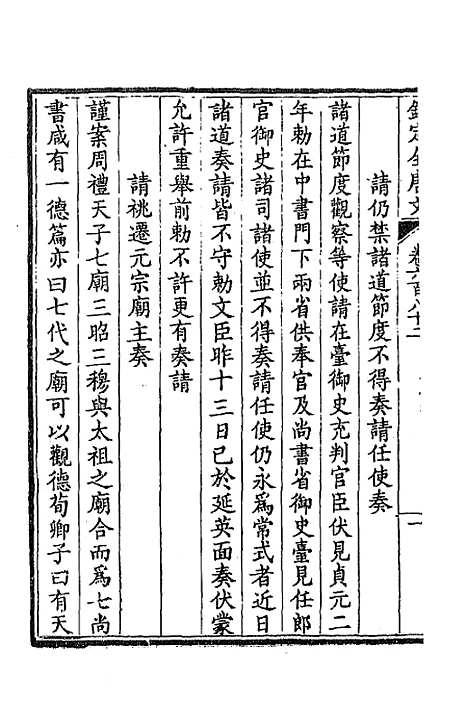 欽定全唐文 卷六百八十二 一
請仍禁諸道節度不得奏請任使奏
諸道節度觀察等使請在臺御史充判官臣伏見貞元二
年勅在中書門下兩省供奉官及尚書省御史臺見任郎
官御史諸司諸使並不得奏請任使仍永爲常式者近日
諸道奏請皆不守勅文臣昨十三日已於延英面奏伏蒙
允許重舉前勅不許更有奏請
請祧遷元宗廟主奏
謹案周禮天子七廟三昭三穆與太祖之廟合而爲七尚
書咸有一德篇亦曰七代之廟可以觀德荀卿子曰有天